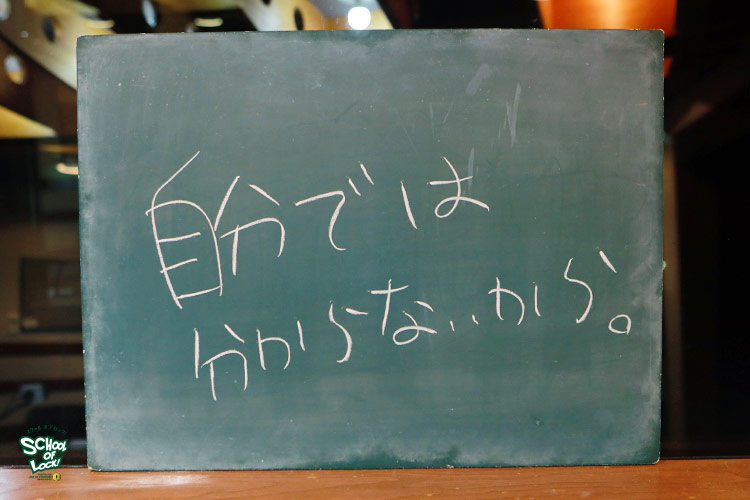 自分では
分からないから。
SCHOOL
OF
LOCK!